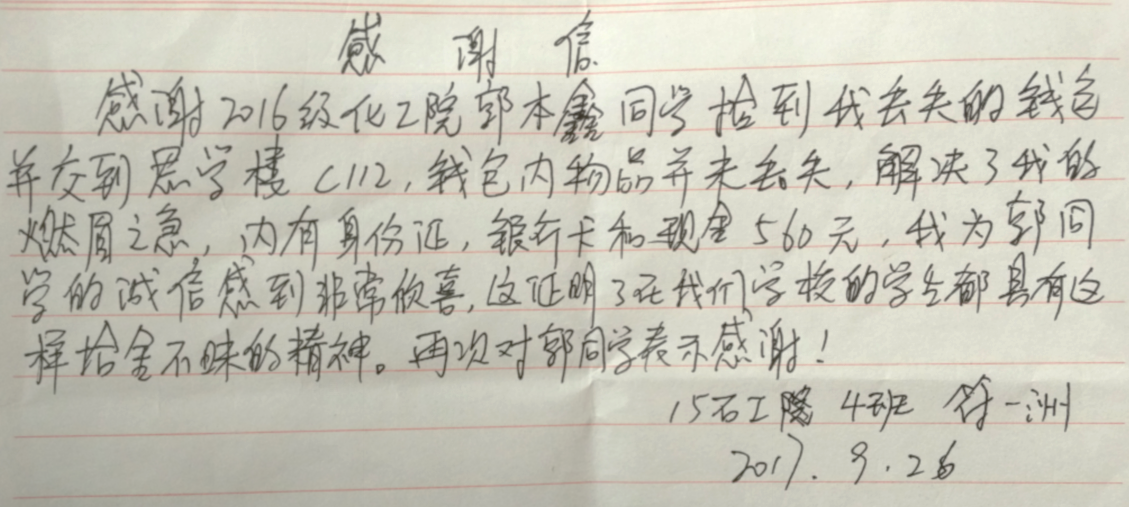 感谢信
感谢2016级化工院郭本鑫同学拾到我丢失的钱包
并交到思学楼C112,钱包内物品并未丢失,解决了我的
燃眉之急,内有身份证,银行卡和现金560元,我为郭同
学的诚信感到非常欣喜,这证明了在我们学校的学生都具有这
样拾金不昧的精神。再次对郭同学表示感谢!
15石工院 4班 符一洲
2017.9.26